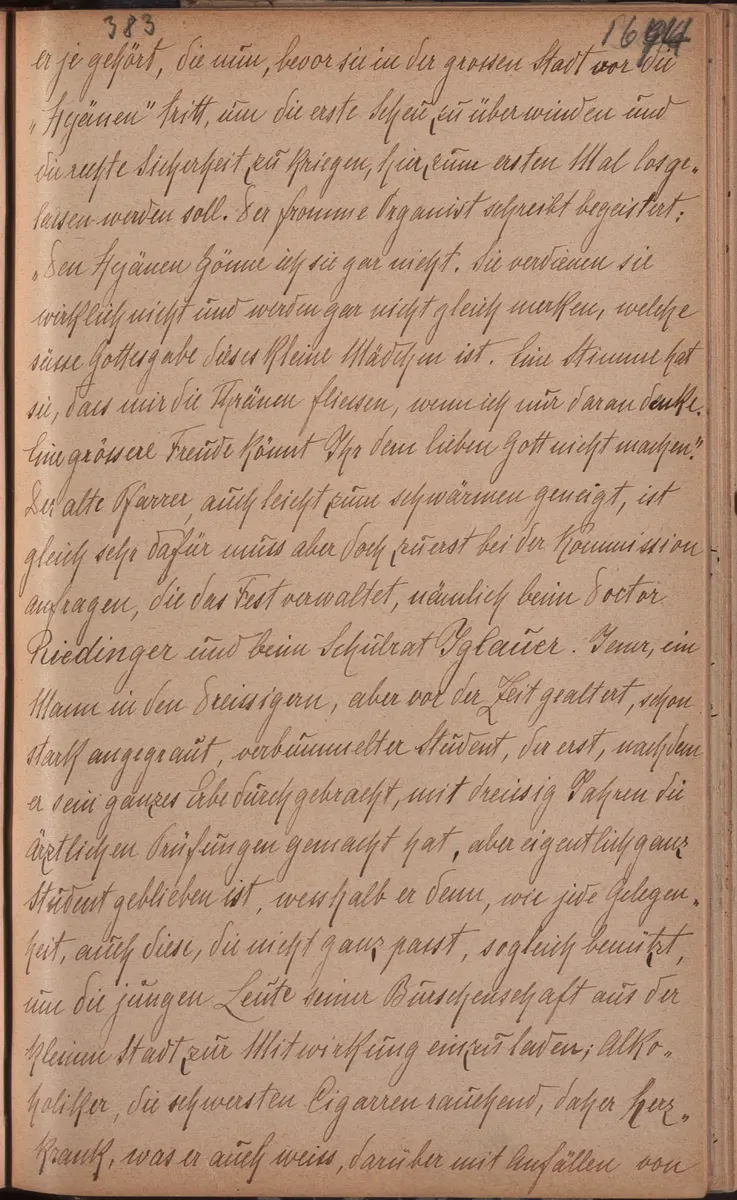 383
er je gehört, die nun, bevor sie in der grossen Stadt vor die
„Hyänen" tritt, um die erste Scheu zu überwinden und
die rechte Sicherheit zu kriegen, hier zum ersten Mal losge-
lassen werden soll. Der fromme Organist schreibt begeistert:
„Den Hyänen gönne ich sie gar nicht. Sie verdienen sie
wirklich nicht und werden gar nicht gleich merken, welche
süsse Gottesgabe dieses kleine Mädchen ist. Eine Stimme hat
sie, dass mir die Thränen fliessen, wenn ich nur daran denke.
Eine grössere Freude könnt Ihr dem lieben Gott nicht machen".
Der alte Pfarrer, auch leicht zum schwärmen geneigt, ist
gleich sehr dafür muss aber doch zuerst bei der Kommission
anfragen, die das Fest verwaltet, nämlich beim Doctor
Riedinger und beim Schulrat Iglauer. Jener, ein
Mann in den Dreissigern, aber vor der Zeit gealtert, schon
stark angegraut, verbummelter Student, der erst, nachdem
er sein ganzes Erbe durchgebracht, mit dreissig Jahren die
ärztlichen Prüfungen gemacht hat, aber eigentlich ganz
Student geblieben ist, wesshalb er denn, wie jede Gelegen-
heit, auch diese, die nicht ganz passt, sogleich benützt,
um die jungen Leute seiner Burschenschaft aus der
kleinen Stadt zur Mitwirkung einzuladen; Alko-
holiker, die schwersten Cigarren rauchend, daher herz-
krank, was er auch weiss, darüber mit Anfällen von